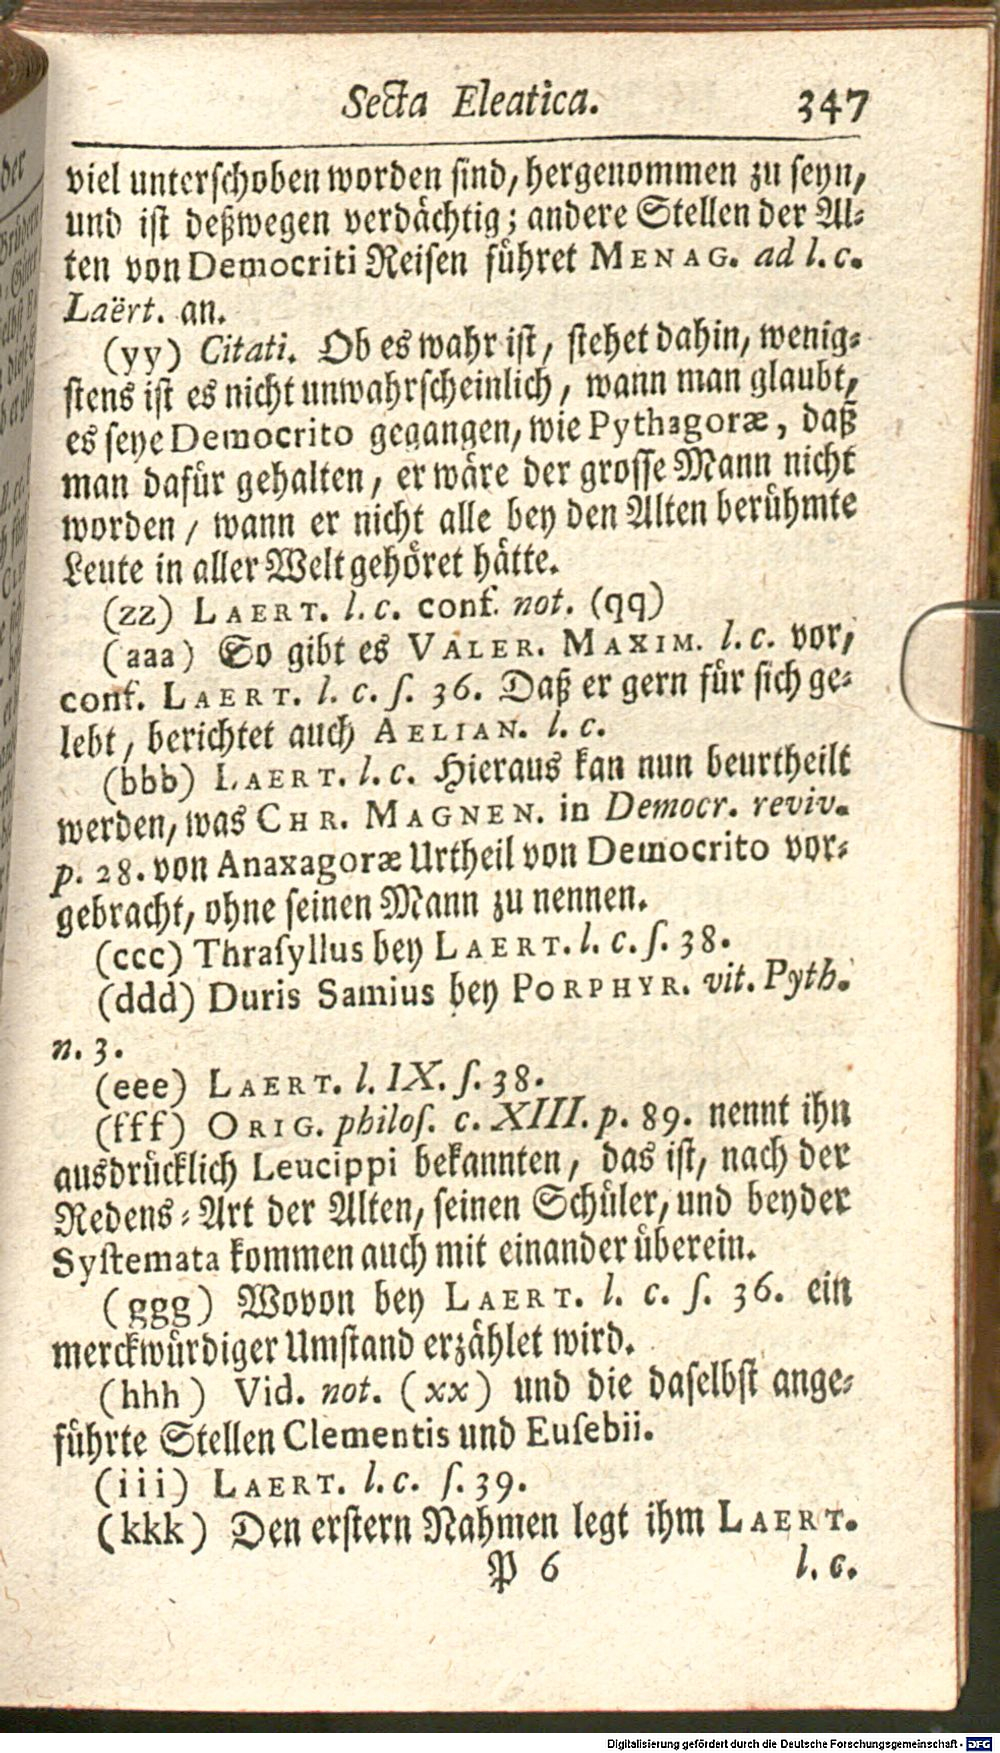 Secta Eleatica. 347
viel unterschoben worden sind, hergenommen zu seyn,
und ist deßwegen verdächtig; andere Stellen der Al-
ten von Democriti Reisen führet MENAG. ad l. c.
Laërt. an.
(yy) Citati. Ob es wahr ist, stehet dahin, wenig-
stens ist es nicht unwahrscheinlich, wann man glaubt,
es seye Democrito gegangen, wie Pythagoræ, daß
man dafür gehalten, er wäre der grosse Mann nicht
worden / wann er nicht alle bey den Alten berühmte
Leute in aller Welt gehöret hätte.
(zz) LAERT. l. c. conf. not. (qq)
(aaa) So gibt es VALER. MAXIM. l. c. vor,
conf. LAERT. l. c. ſ. 36. Daß er gern für sich ge-
lebt, berichtet auch AELIAN. l. c.
(bbb) LAERT. l. c. Hieraus kan nun beurtheilt
werden, was CHR. MAGNEN. in Democr. reviv.
p. 28. von Anaxagoræ Urtheil von Democrito vor-
gebracht, ohne seinen Mann zu nennen.
(ccc) Thraſyllus bey LAERT. l. c. ſ. 38.
(ddd) Duris Samius bey PORPHYR. vit. Pyth.
n. 3.
(eee) LAERT. l. IX. ſ. 38.
(fff) ORIG. philoſ. c. XIII. p. 89. nennt ihn
ausdrücklich Leucippi bekannten, das ist, nach der
Redens-Art der Alten, seinen Schüler, und beyder
Syſtemata kommen auch mit einander überein.
(ggg) Wovon bey LAERT. l. c. ſ. 36. ein
merckwürdiger Umstand erzählet wird.
(hhh) Vid. not. (xx) und die daselbst ange-
führte Stellen Clementis und Euſebii.
(iii) LAERT. l. c. ſ. 39.
(kkk) Den erstern Nahmen legt ihm LAERT.
P 6 l. c.
Digitalisierung gefördert durch die Deutsche Forschungsgemeinschaft - DFG